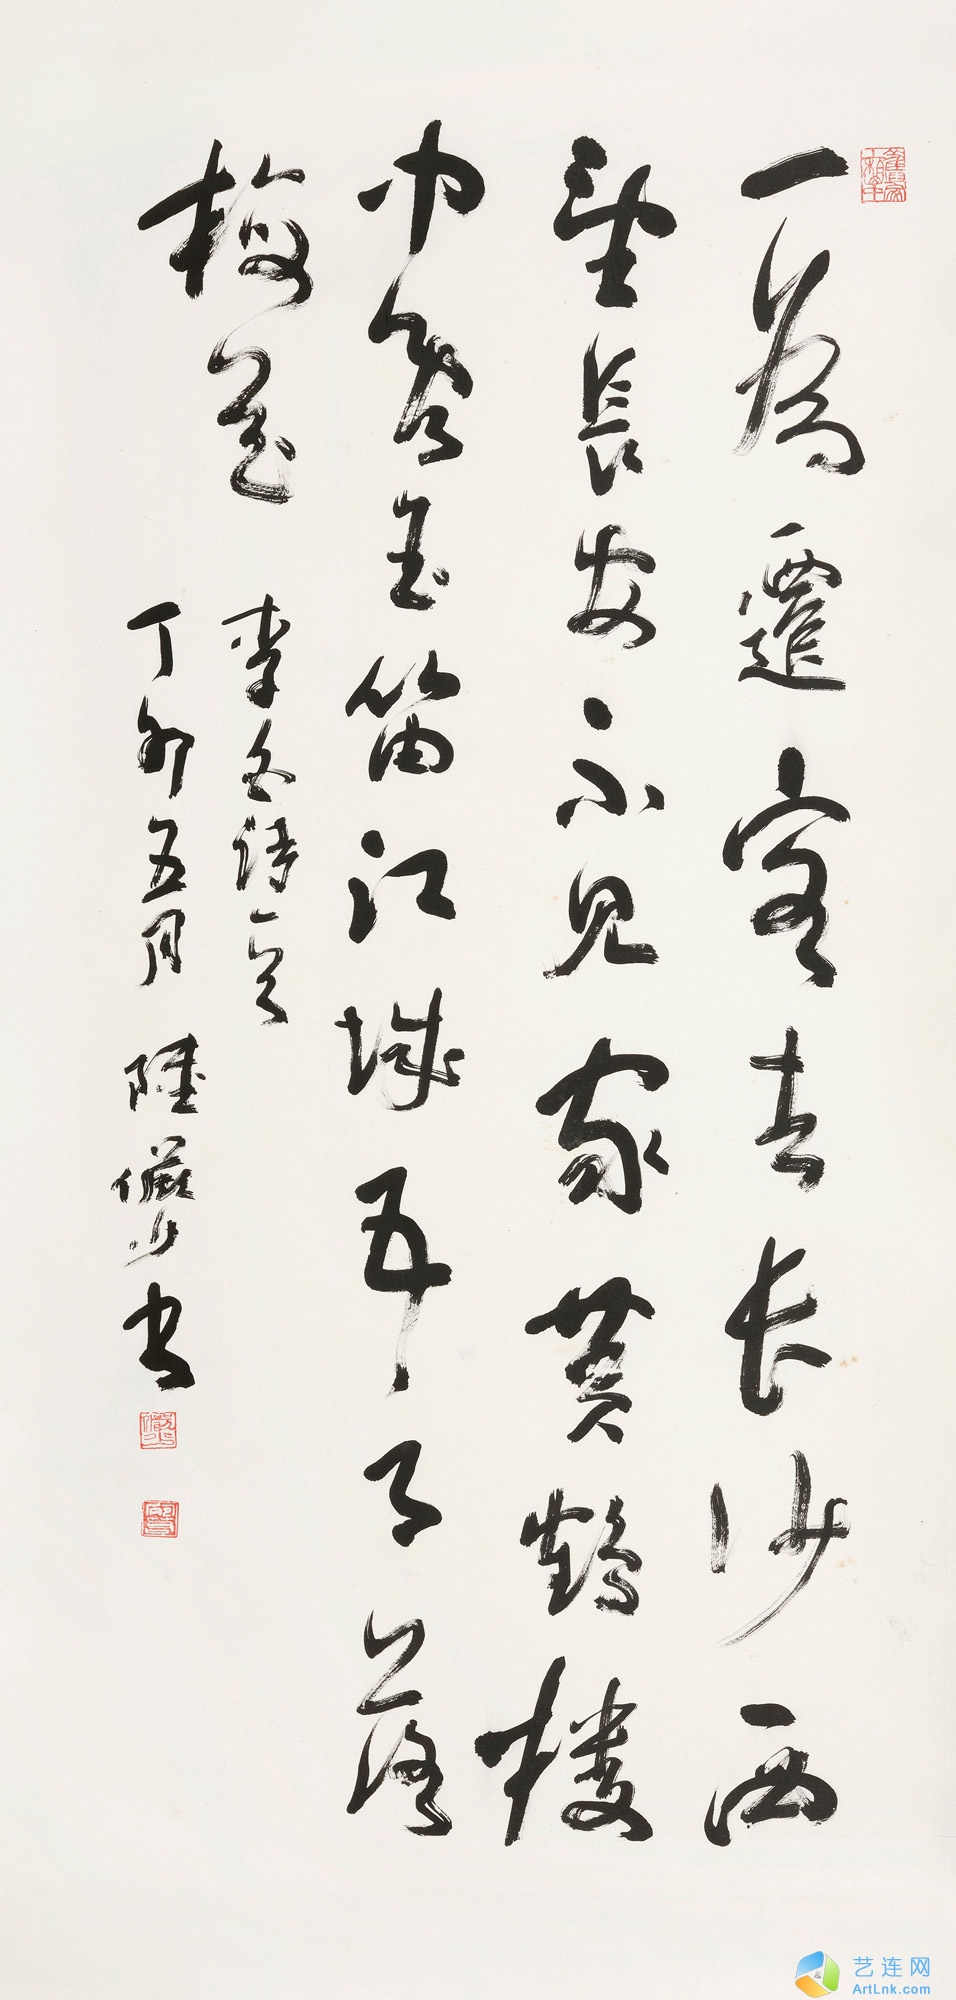 一为遷客去长沙西
望長安不见家黄鹤楼
中吹玉笛江城五月落
梅花
李白诗一首
丁卯五月 陸儼少书
艺连网
ArtLnk.com